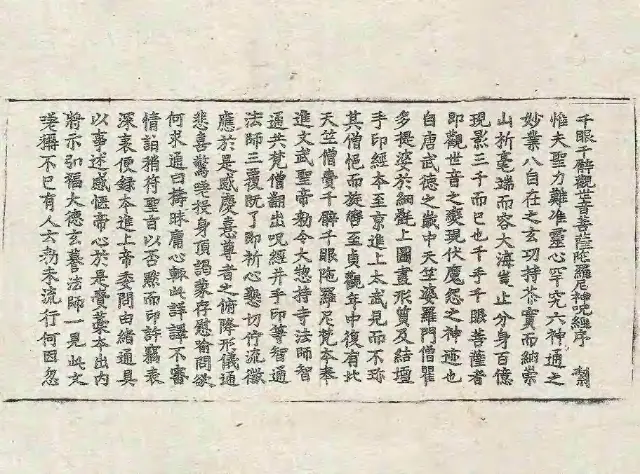 千眼千臂觀世音菩薩陀羅尼神呪經序　製
惟夫聖力難准靈心罕究六神通之
妙業八自在之玄功持芥實而納崇
山折毫端而容大海豈止分身百億
現影三千而已也千手千眼菩薩者
即觀世音之變現伏魔怨之神迹也
自唐武德之歲中天竺婆羅門僧瞿
多提婆於細氎上圖畫形質及結壇
手印經本至京進上太武見而不珎
其僧悒而旋轡至貞觀年中復有北
天竺僧賷千臂千眼陁羅尼梵本奉
進文武聖帝勑令大揔持寺法師智
通共梵僧翻出呪經并手印等智通
法師三覆既了即祈心懇切佇流徵
應於是感慶喜尊者之俯降形儀通
悲喜驚嗟投身頂謁蒙存慰喻問欲
何求通曰擣昧庸心輒此詳譯不審
情詣稍符聖旨以否黙而印許竊表
深衷便録本進上帝委問由緒通具
以事述感愜帝心於是賫藁本出内
將示弘福大德玄暮法師一見此文
嗟稱不已有人云勑未流行何因忽